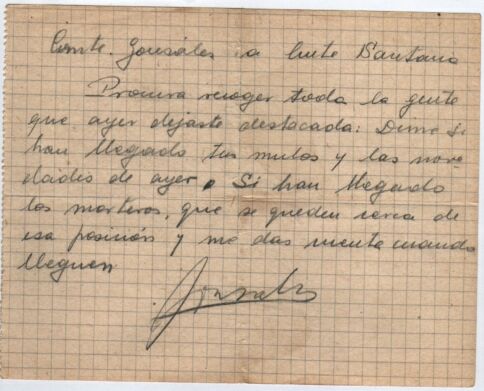 Comte. Gonzáles a Cmte Santana
Procura recoger toda la gente
que ayer dejaste destacada: Dime si
han llegado tus mulos y las nove
dades de ayer. Si han llegado
los morteros, que se queden cerca de
esa posición y me das cuenta cuando
lleguen
Gonzales